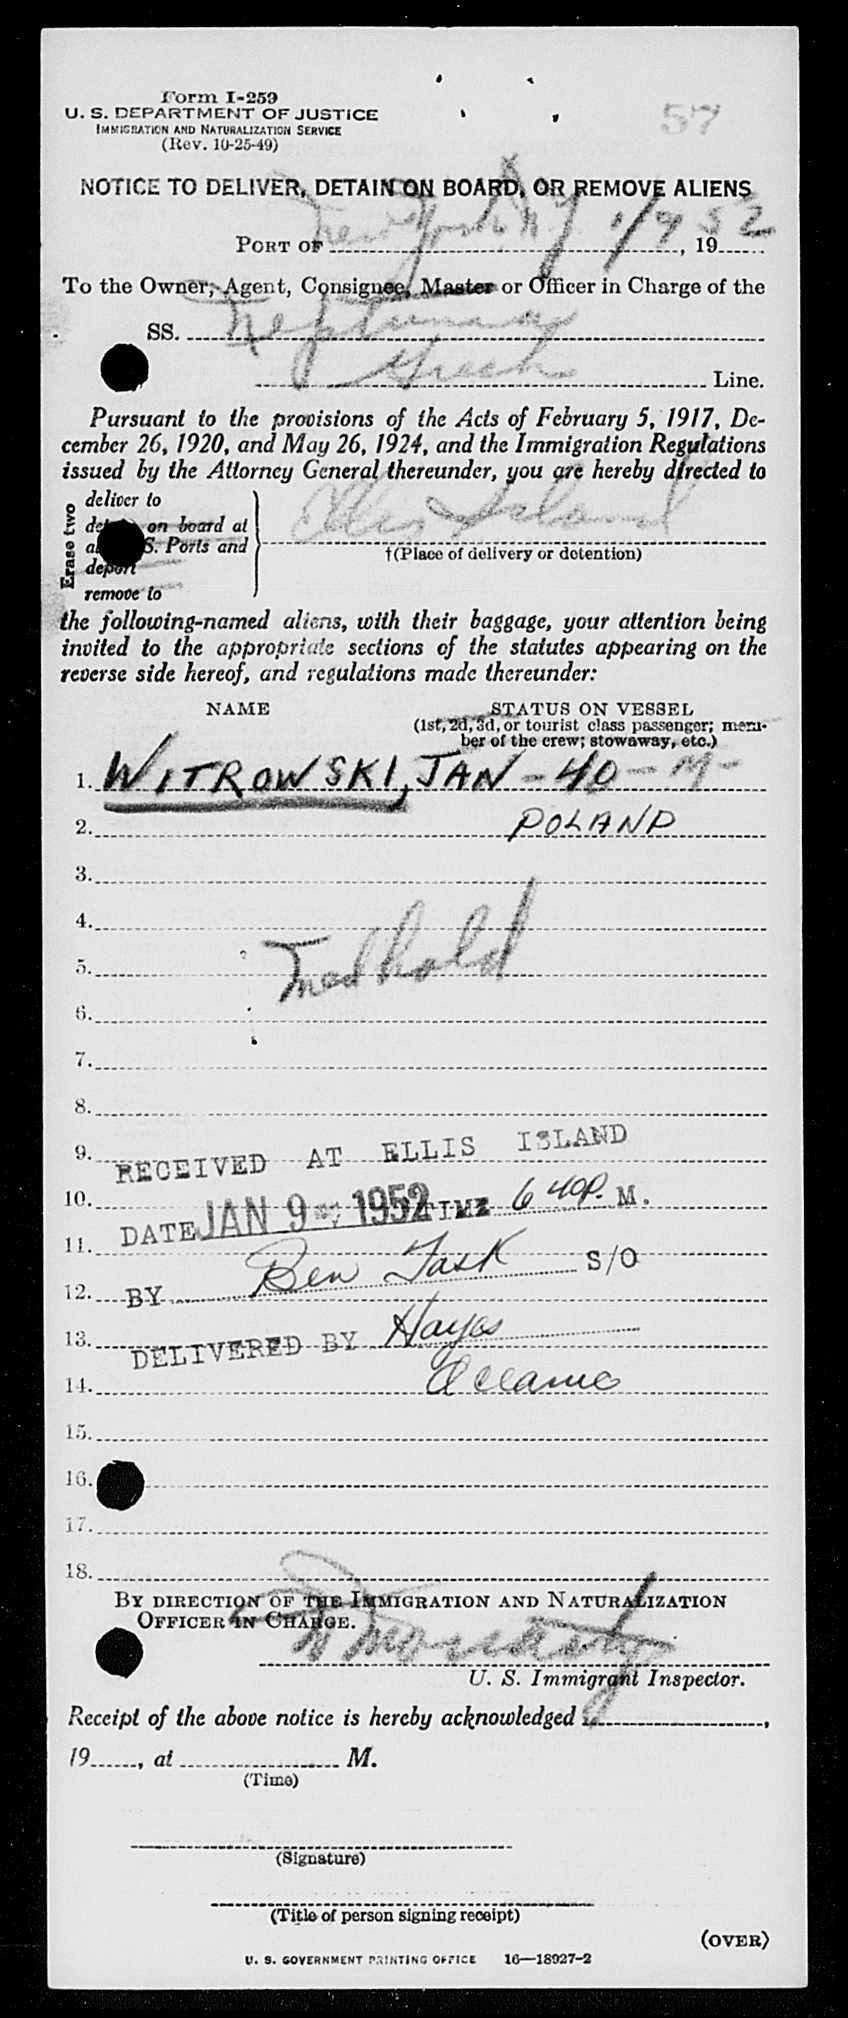 57
Form I-259
U. S. DEPARTMENT OF JUSTICE
IMMIGRATION AND NATURALIZATION SERVICE
(Rev. 10-25-49)
NOTICE TO DELIVER, DETAIN ON BOARD, OR REMOVE ALIENS
PORT OF New York, N.Y. 1/9, 1952
To the Owner, Agent, Consignee, Master or Officer in Charge of the
SS. Neptunia
Greek Line.
Pursuant to the provisions of the Acts of February 5, 1917, De-
cember 26, 1920, and May 26, 1924, and the Immigration Regulations
issued by the Attorney General thereunder, you are hereby directed to
Erase two
deliver to
on board at
S. Ports and
deport
remove to
Ellis Island
†(Place of delivery or detention)
the following-named aliens, with their baggage, your attention being
invited to the appropriate sections of the statutes appearing on the
reverse side hereof, and regulations made thereunder:
NAME STATUS ON VESSEL
(1st, 2d, 3d, or tourist class passenger; mem-
ber of the crew; stowaway, etc.)
1. WITROWSKI, JAN - 40 - M -
2. POLAND
3.
4.
5. Med hold
6.
7.
8.
9. RECEIVED AT ELLIS ISLAND
10. DATE JAN 9 1952 TIME 6 40 P. M.
11.
12. BY Ben Task S/O
13. DELIVERED BY Hayes
14. Oceanic
15.
16.
17.
18.
BY DIRECTION OF THE IMMIGRATION AND NATURALIZATION
OFFICER IN CHARGE.
U. S. Immigrant Inspector.
Receipt of the above notice is hereby acknowledged ,
19 , at M.
(Time)
(Signature)
(Title of person signing receipt)
(OVER)
U. S. GOVERNMENT PRINTING OFFICE 16—18927-2